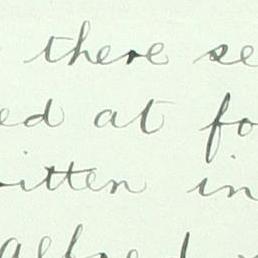 there se
ed at fo
itten in